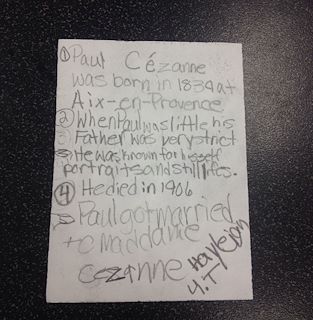 ① Paul Cézanne
was born in 1839 at
Aix-en-Provence
② When Paul was little his
Father was very strict
3 He was known for his self
portraits and still lifes.
④ He died in 1906
5 Paul got married
to maddame
cezanne
4.T